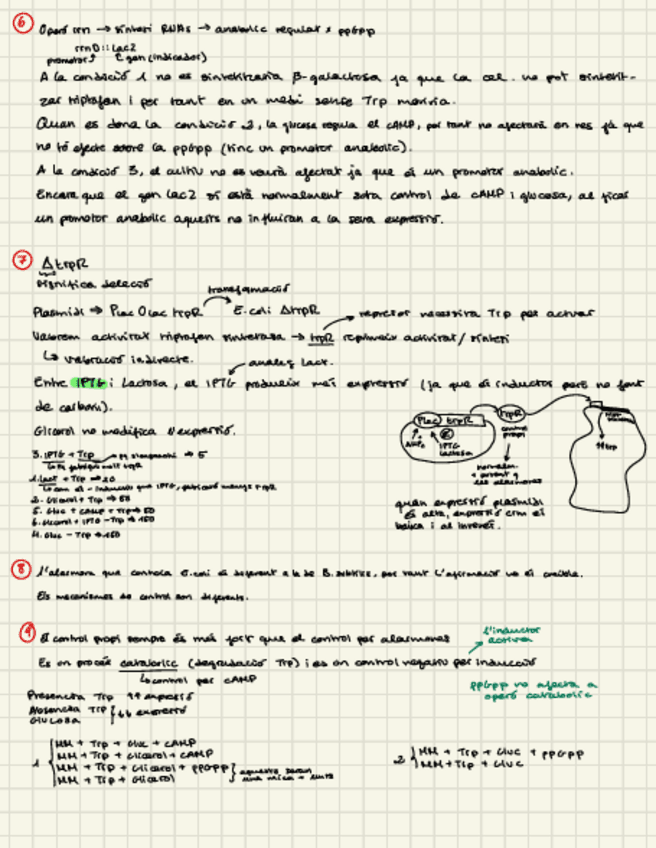 6 Operó rrn → síntesi RNAs → anabolic regulat x ppGpp
rrnD::lacZ
promotor gen (indicador)
A la condició 1 no es sintetitzaria β-galactosa ja que la cel. no pot sintetit-
zar triptofan i per tant en un medi sense Trp moriria.
Quan es dona la condició 2, la glucosa regula el cAMP, per tant no afectarà en res ja que
no té efecte sobre la ppGpp (tinc un promotor anabolic).
A la condició 3, el cultiu no es veurà afectat ja que és un promotor anabolic.
Encara que el gen lacZ sí està normalment sota control de cAMP i glucosa, al ficar
un promotor anabolic aquests no influiran a la seva expressió.
7 ΔtrpR
significa deleció
transformació
Plasmidi → Plac Olac trpR E.coli ΔtrpR → repressor necessita Trp per actuar
Valorem activitat triptofan sintetasa → trpR repimeix activitat/síntesi
↳ valoració indirecte.
analeg lact.
Entre IPTG i Lactosa, el IPTG produeix més expressió (ja que és inductor però no font
de carboni).
Glicerol no modifica l'expressió.
Plac trpR
trpR
control propi
IPTG
lactosa
3. IPTG + Trp → 5
1. Lact + Trp → 20
2. Glicerol + Trp → 
5. Gluc + cAMP + Trp → 50
6. Glicerol + IPTG - Trp → 150
4. Gluc - Trp → 150
quan expressió plasmidi
és alta, expressió crm és
baixa i al inrevés.
8 L'alarmona que controla E.coli és diferent a la de B.subtilis, per tant l'afirmació no és creible.
Els mecanismes de control són diferents.
9 El control propi sempre és més fort que el control per alarmones
l'inductor
activa
És un procés catabolic (degradació Trp) i és un control negatiu per inducció
↳ control per cAMP
ppGpp no afecta a
operó catabolic
Presencia Trp ↑↑ expressió
Absencia Trp ↓↓ expressió
GLUCOSA
1 MM + Trp + Gluc + cAMP
MM + Trp + Glicerol + cAMP
MM + Trp + Glicerol + ppGpp
MM + Trp + Glicerol
2 MM + Trp + Gluc + ppGpp
MM + Trp + Gluc